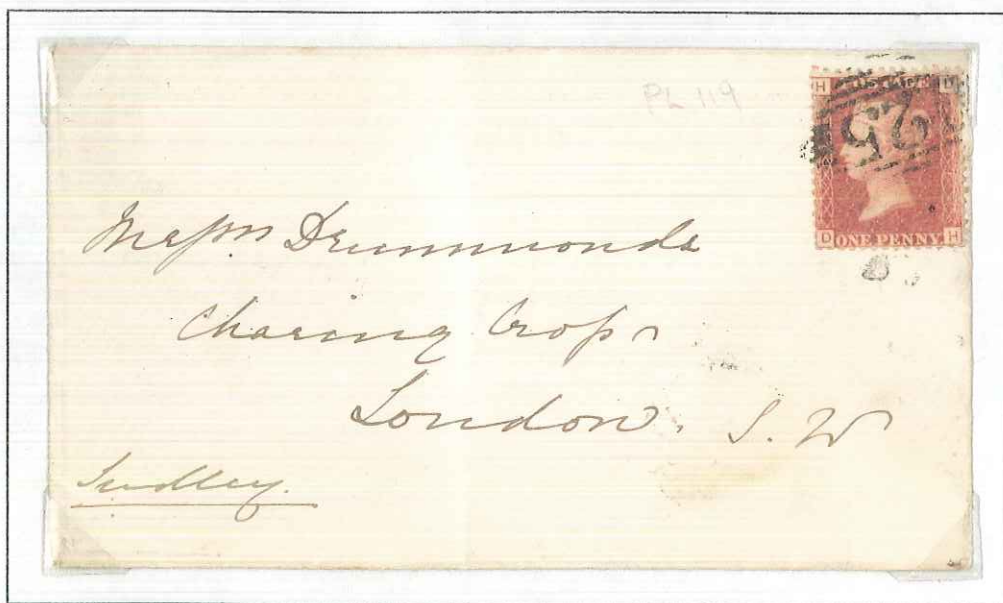 PL 119
H POSTAGE D
25
D ONE PENNY H
Messrs Drummonds
Charing Cross
London. S. W
Sudley.